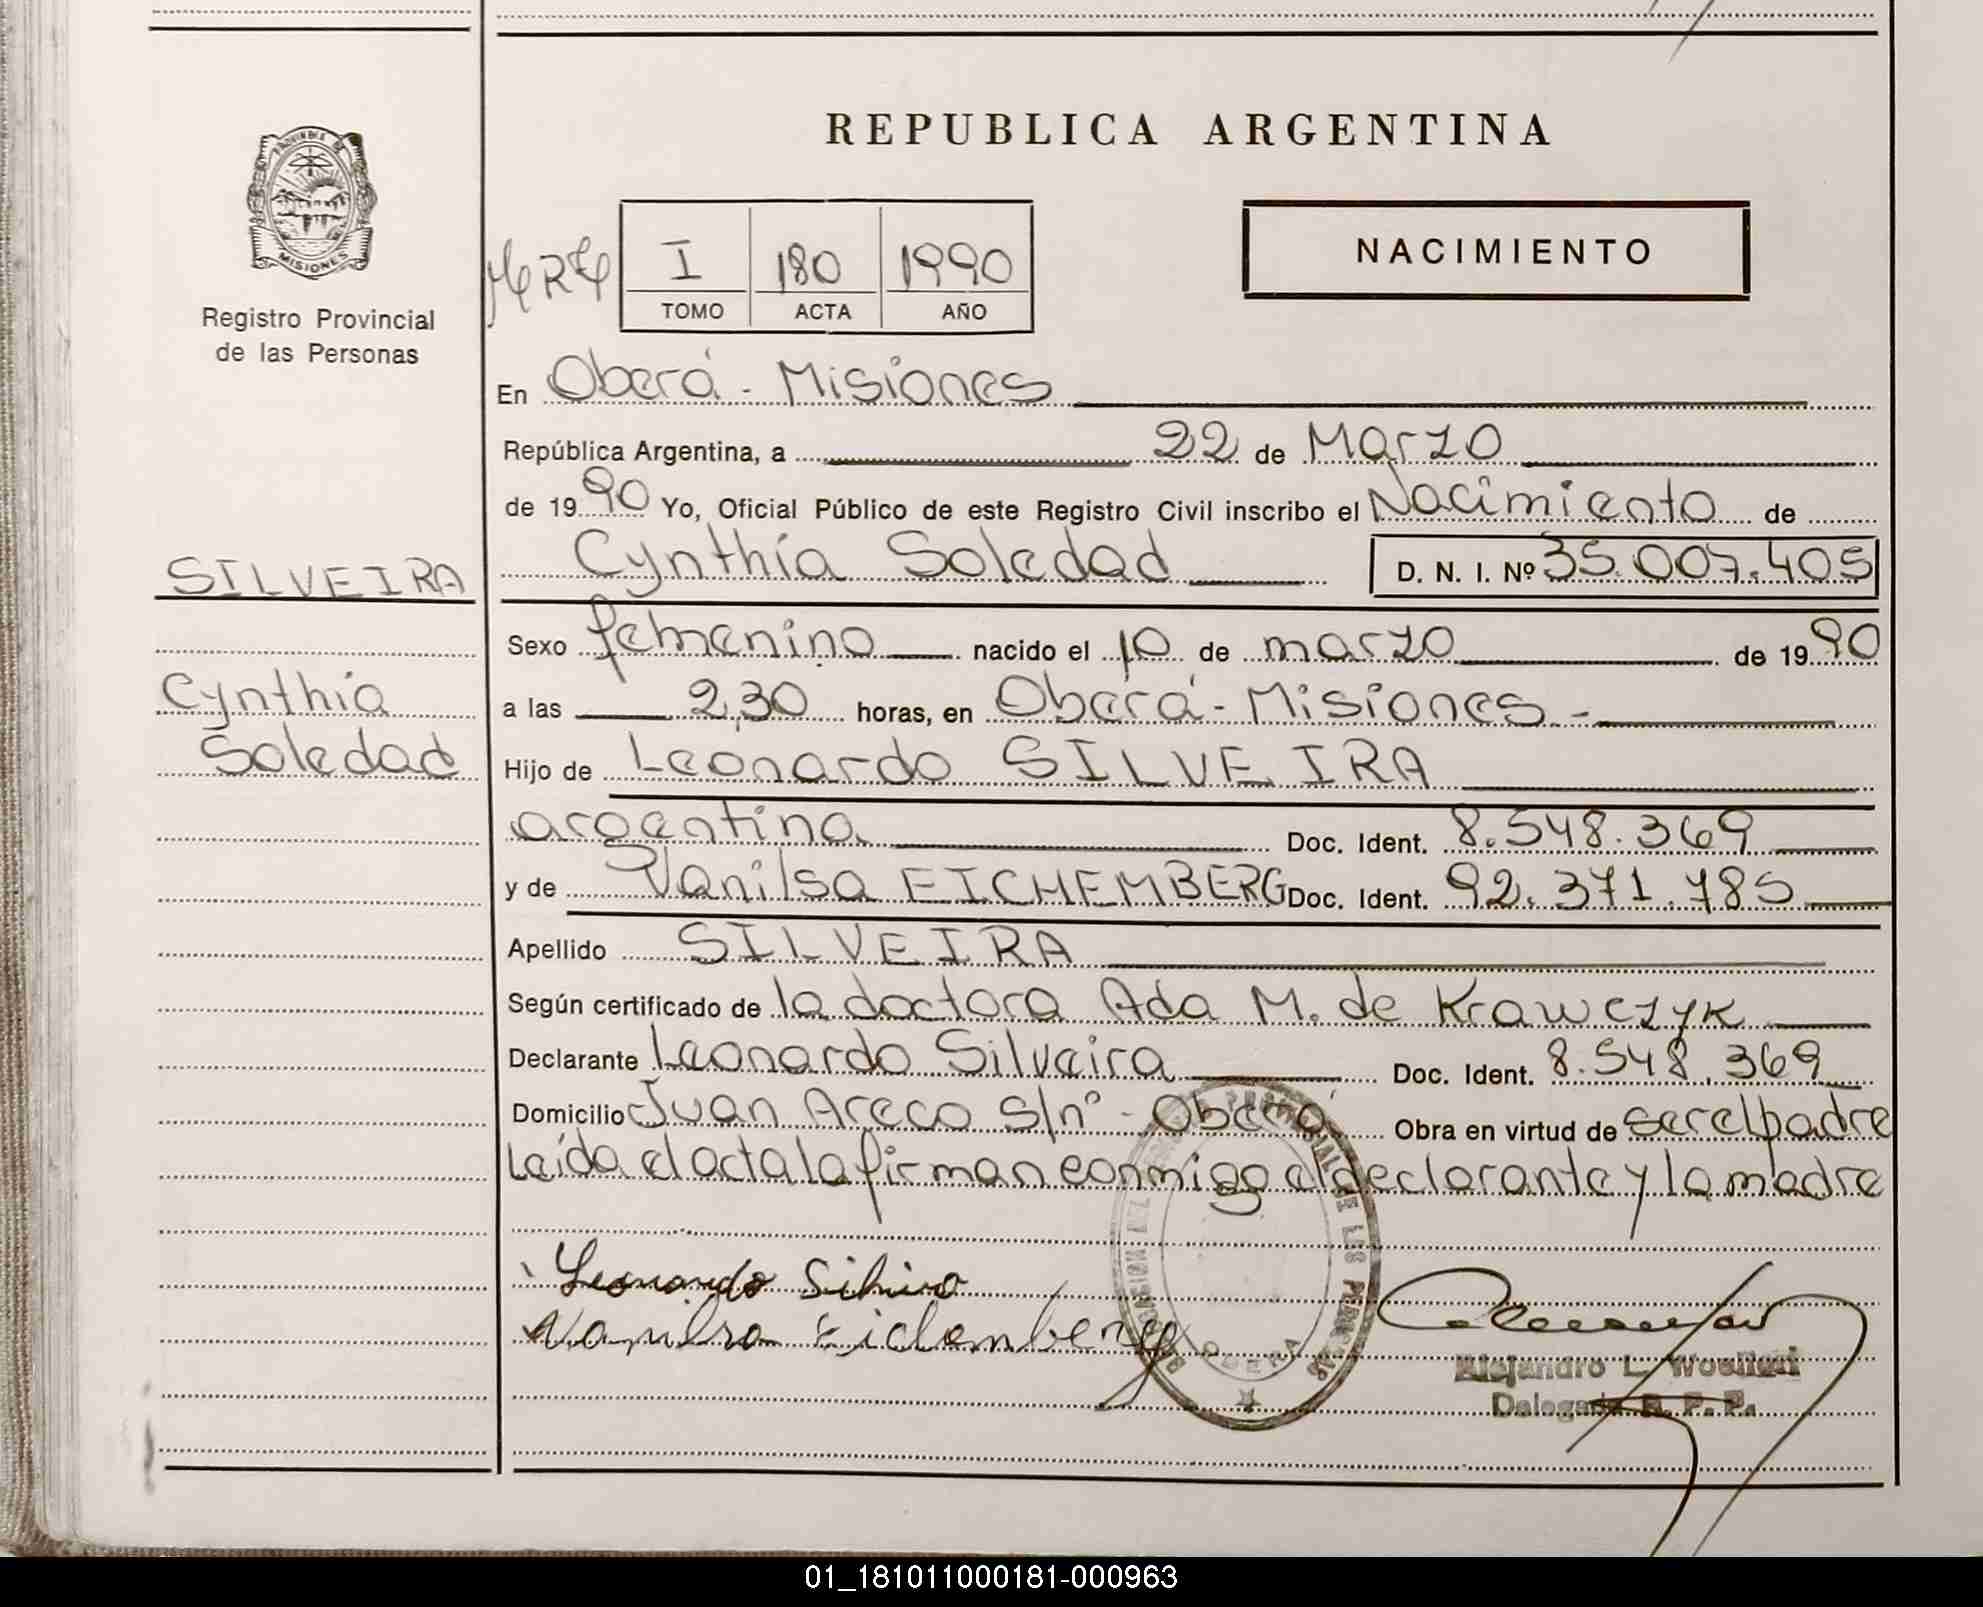 REPUBLICA ARGENTINA
PROVINCIA DE
MISIONES
Registro Provincial
de las Personas
I 180 1990
TOMO ACTA AÑO
NACIMIENTO
En Oberá - Misiones
República Argentina, a 22 de Marzo
de 1990 Yo, Oficial Público de este Registro Civil inscribo el Nacimiento de
Cynthia Soledad D. N. I. Nº 35.007.405
SILVEIRA
Cynthia
Soledad
Sexo femenino nacido el 10 de marzo de 1990
a las 2,30 horas, en Oberá - Misiones -
Hijo de Leonardo SILVEIRA
argentino Doc. Ident. 8.548.369
y de Vanilsa EICHEMBERG Doc. Ident. 92.371.785
Apellido SILVEIRA
Según certificado de la doctora Ada M. de Krawczyk
Declarante Leonardo Silveira Doc. Ident. 8.548.369
Domicilio Juan Areco s/nº - Oberá Obra en virtud de ser el padre
Leída el acta la firman conmigo el declarante y la madre
Leonardo Silveira
Vanilsa Eichemberg
OBERA
Alejandro L.
Delegado R. P. P.
01_181011000181-000963